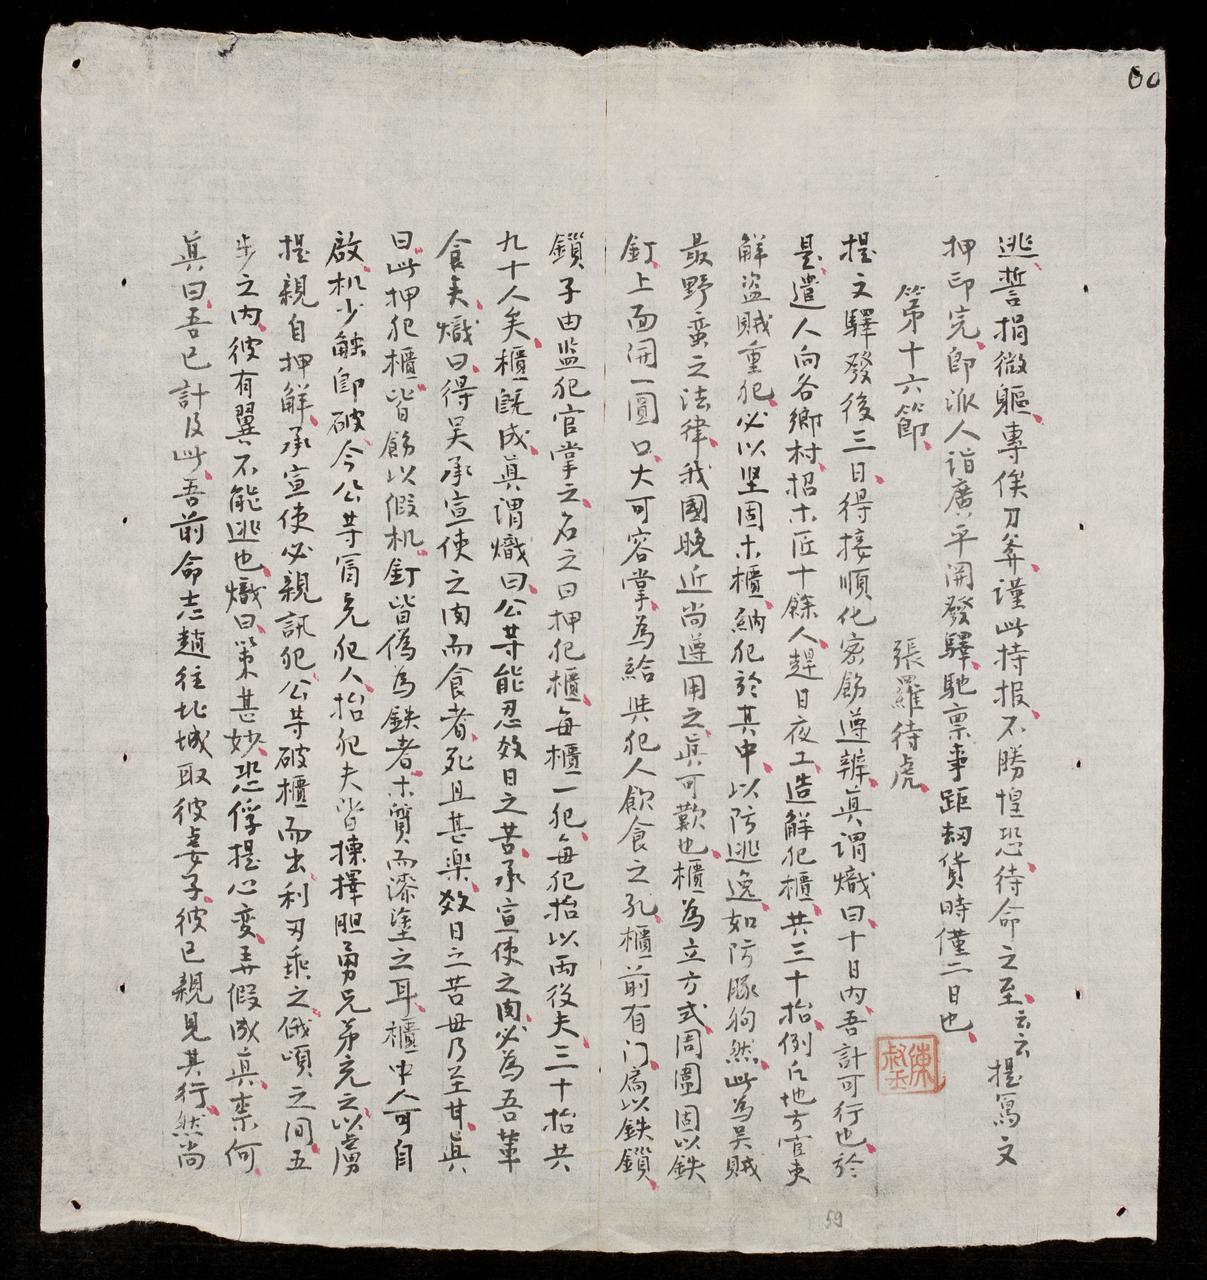 60
逃誓捐微軀專俟刀斧謹此特报不勝惶恐待命之至云云 提寫文
押印完即派人詣廣平開發驛馳禀事距刼貨時僅二日也
第十六節 張羅待虎
陳叔玉
提文驛發後三日得接順化密飭遵辦真謂熾曰十日內吾計可行也於
是遣人向各鄉村招木匠十餘人趕日夜工造解犯櫃共三十抬例凡地方官吏
解盜賊重犯必以坚固木櫃納犯於其中以防逃逸如防豚狗然此為吳賊
最野蛮之法律我國晚近尚遵用之真可歎也櫃為立方式周圍固以鉄
釘上面開一圓口大可容掌為給與犯人飲食之孔櫃前有门扃以鉄鎖
鎖子由监犯官掌之名之曰押犯櫃每櫃一犯每犯抬以兩役夫三十抬共
九十人矣櫃既成真谓熾曰公等能忍数日之苦承宣使之肉必為吾輩
食矣熾曰得吴承宣使之肉而食者死且甚樂数日之苦毋乃至甘真
曰此押犯櫃皆飭以假机釘皆偽為鉄者木質而漆塗之耳櫃中人可自
啟机少触即破今公等冒充犯人抬犯夫皆揀擇胆勇兄弟充之以虜
提親自押解承宣使必親訊犯公等破櫃而出利刃乘之俄頃之间五
步之内彼有翼不能逃也熾曰策甚妙恐俘提心变弄假成真柰何
真曰吾已計及此吾前命志趙往北城取彼妻子彼已親見其行然尚
59